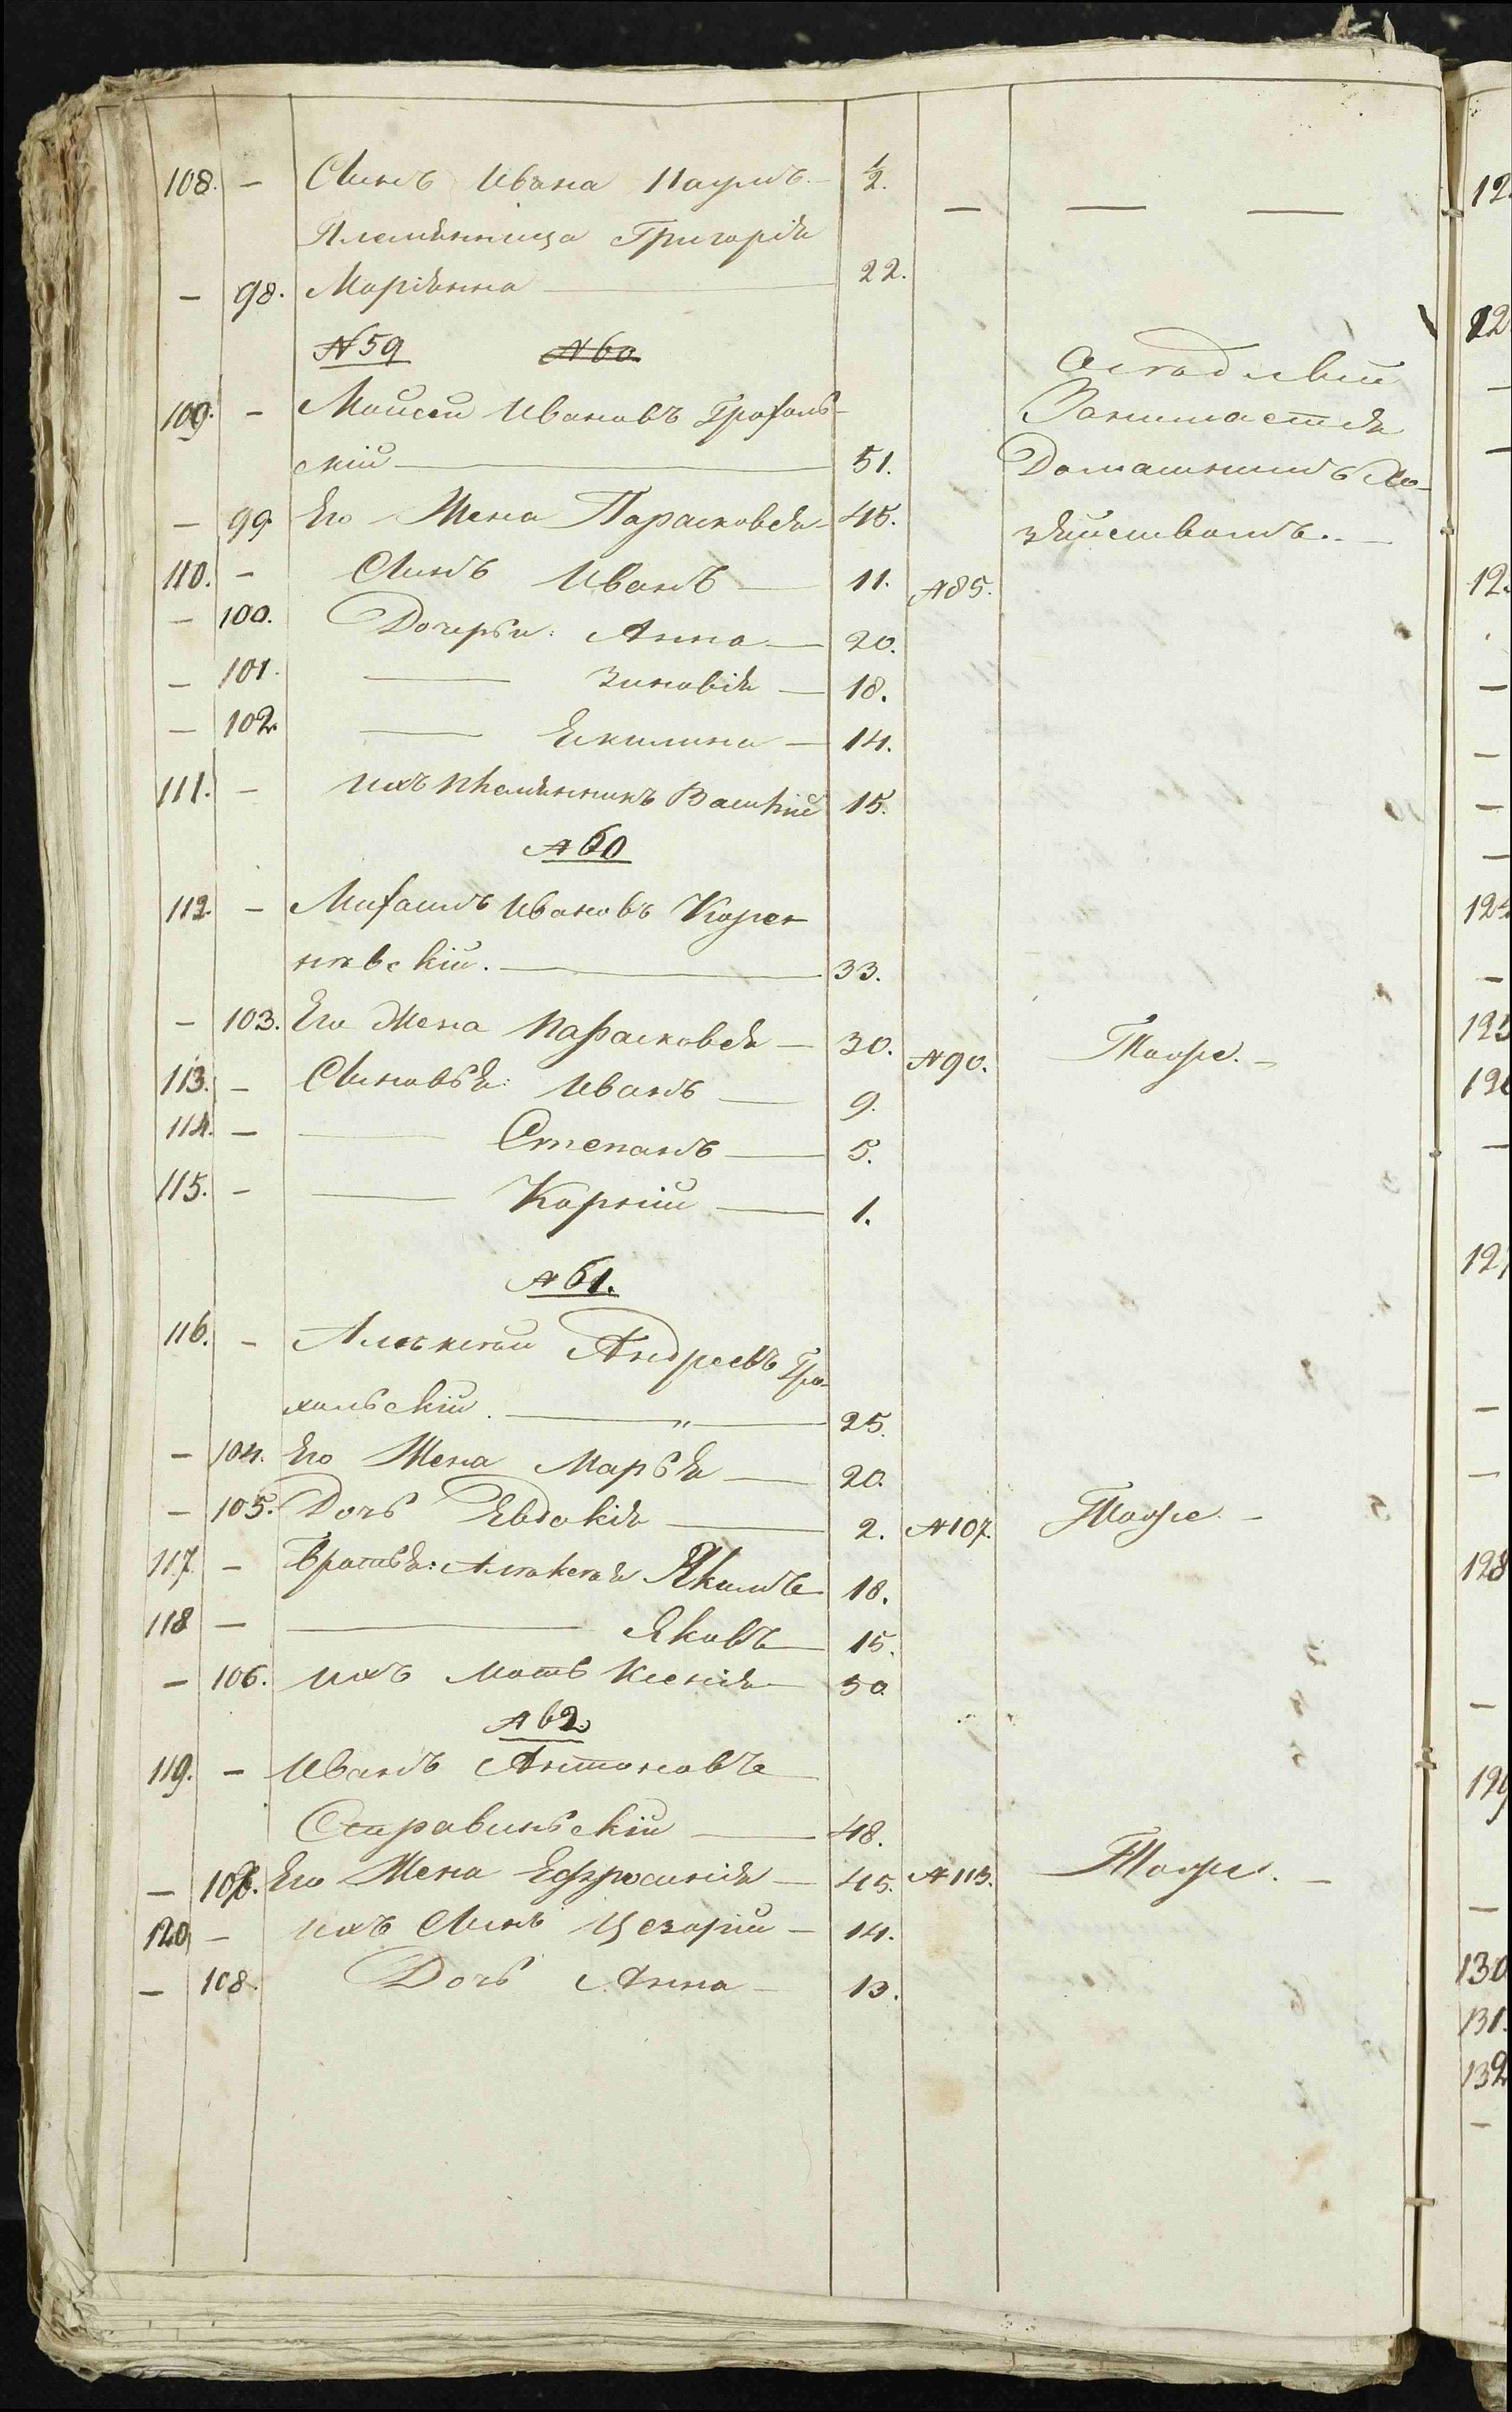 108. – Сынъ Ивана Наумъ – 1/2. – — —
Племянница Григорія
– 98. Маріянна — 22.
№ 59 № 60
109. – Моисей Ивановъ Грохоль-
скій — 51.
Осѣдлый
Занимается
Домашнимъ Хо-
зяйствомъ. –
– 99. Его Жена Парасковея – 45.
110. – Сынъ Иванъ — 11. № 85.
– 100. Дочери: Анна — 20.
– 101. — Зиновія — 18.
– 102. — Екилина — 14.
111. – Ихъ племянникъ Василій 15.
№ 60
112. – Михаилъ Ивановъ Корса-
ковскій. — 33.
– 103. Его Жена Парасковея — 30. № 90. Тоже. –
113. – Сыновья: Иванъ — 9.
114. – — Степанъ — 5.
115. – — Корній — 1.
№ 61.
116. – Алексѣй Андреевъ Гро-
хольскій. — 25.
– 104. Его Жена Марья — 20.
– 105. Дочь Евдокія — 2. № 107. Тоже. –
117. – Братья: Алексѣя Якимъ 18.
118 – — Яковъ — 15.
– 106. Ихъ Мать Ксенія — 50
№ 62.
119. – Иванъ Антоновъ
Старавинскій — 48.
– 107. Его Жена Ефросинія — 45. № 113. Тоже. –
120, – Ихъ Сынъ Цезарій – 14.
– 108. Дочь Анна – 13.